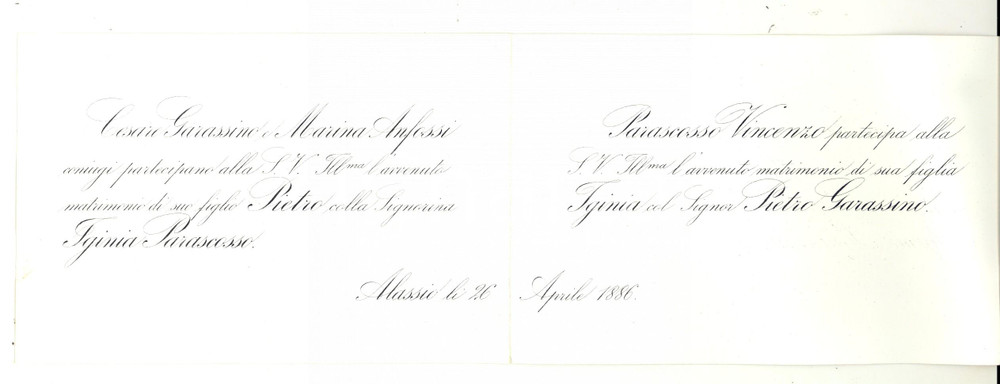 Cesare Garassino e Marina Anfossi
coniugi partecipano alla S. V. Ill.ma l'avvenuto
matrimonio di suo figlio Pietro colla Signorina
Iginia Parascosso.
Parascosso Vincenzo partecipa alla
S. V. Ill.ma l'avvenuto matrimonio di sua figlia
Iginia col Signor Pietro Garassino.
Alassio li 26 Aprile 1886.